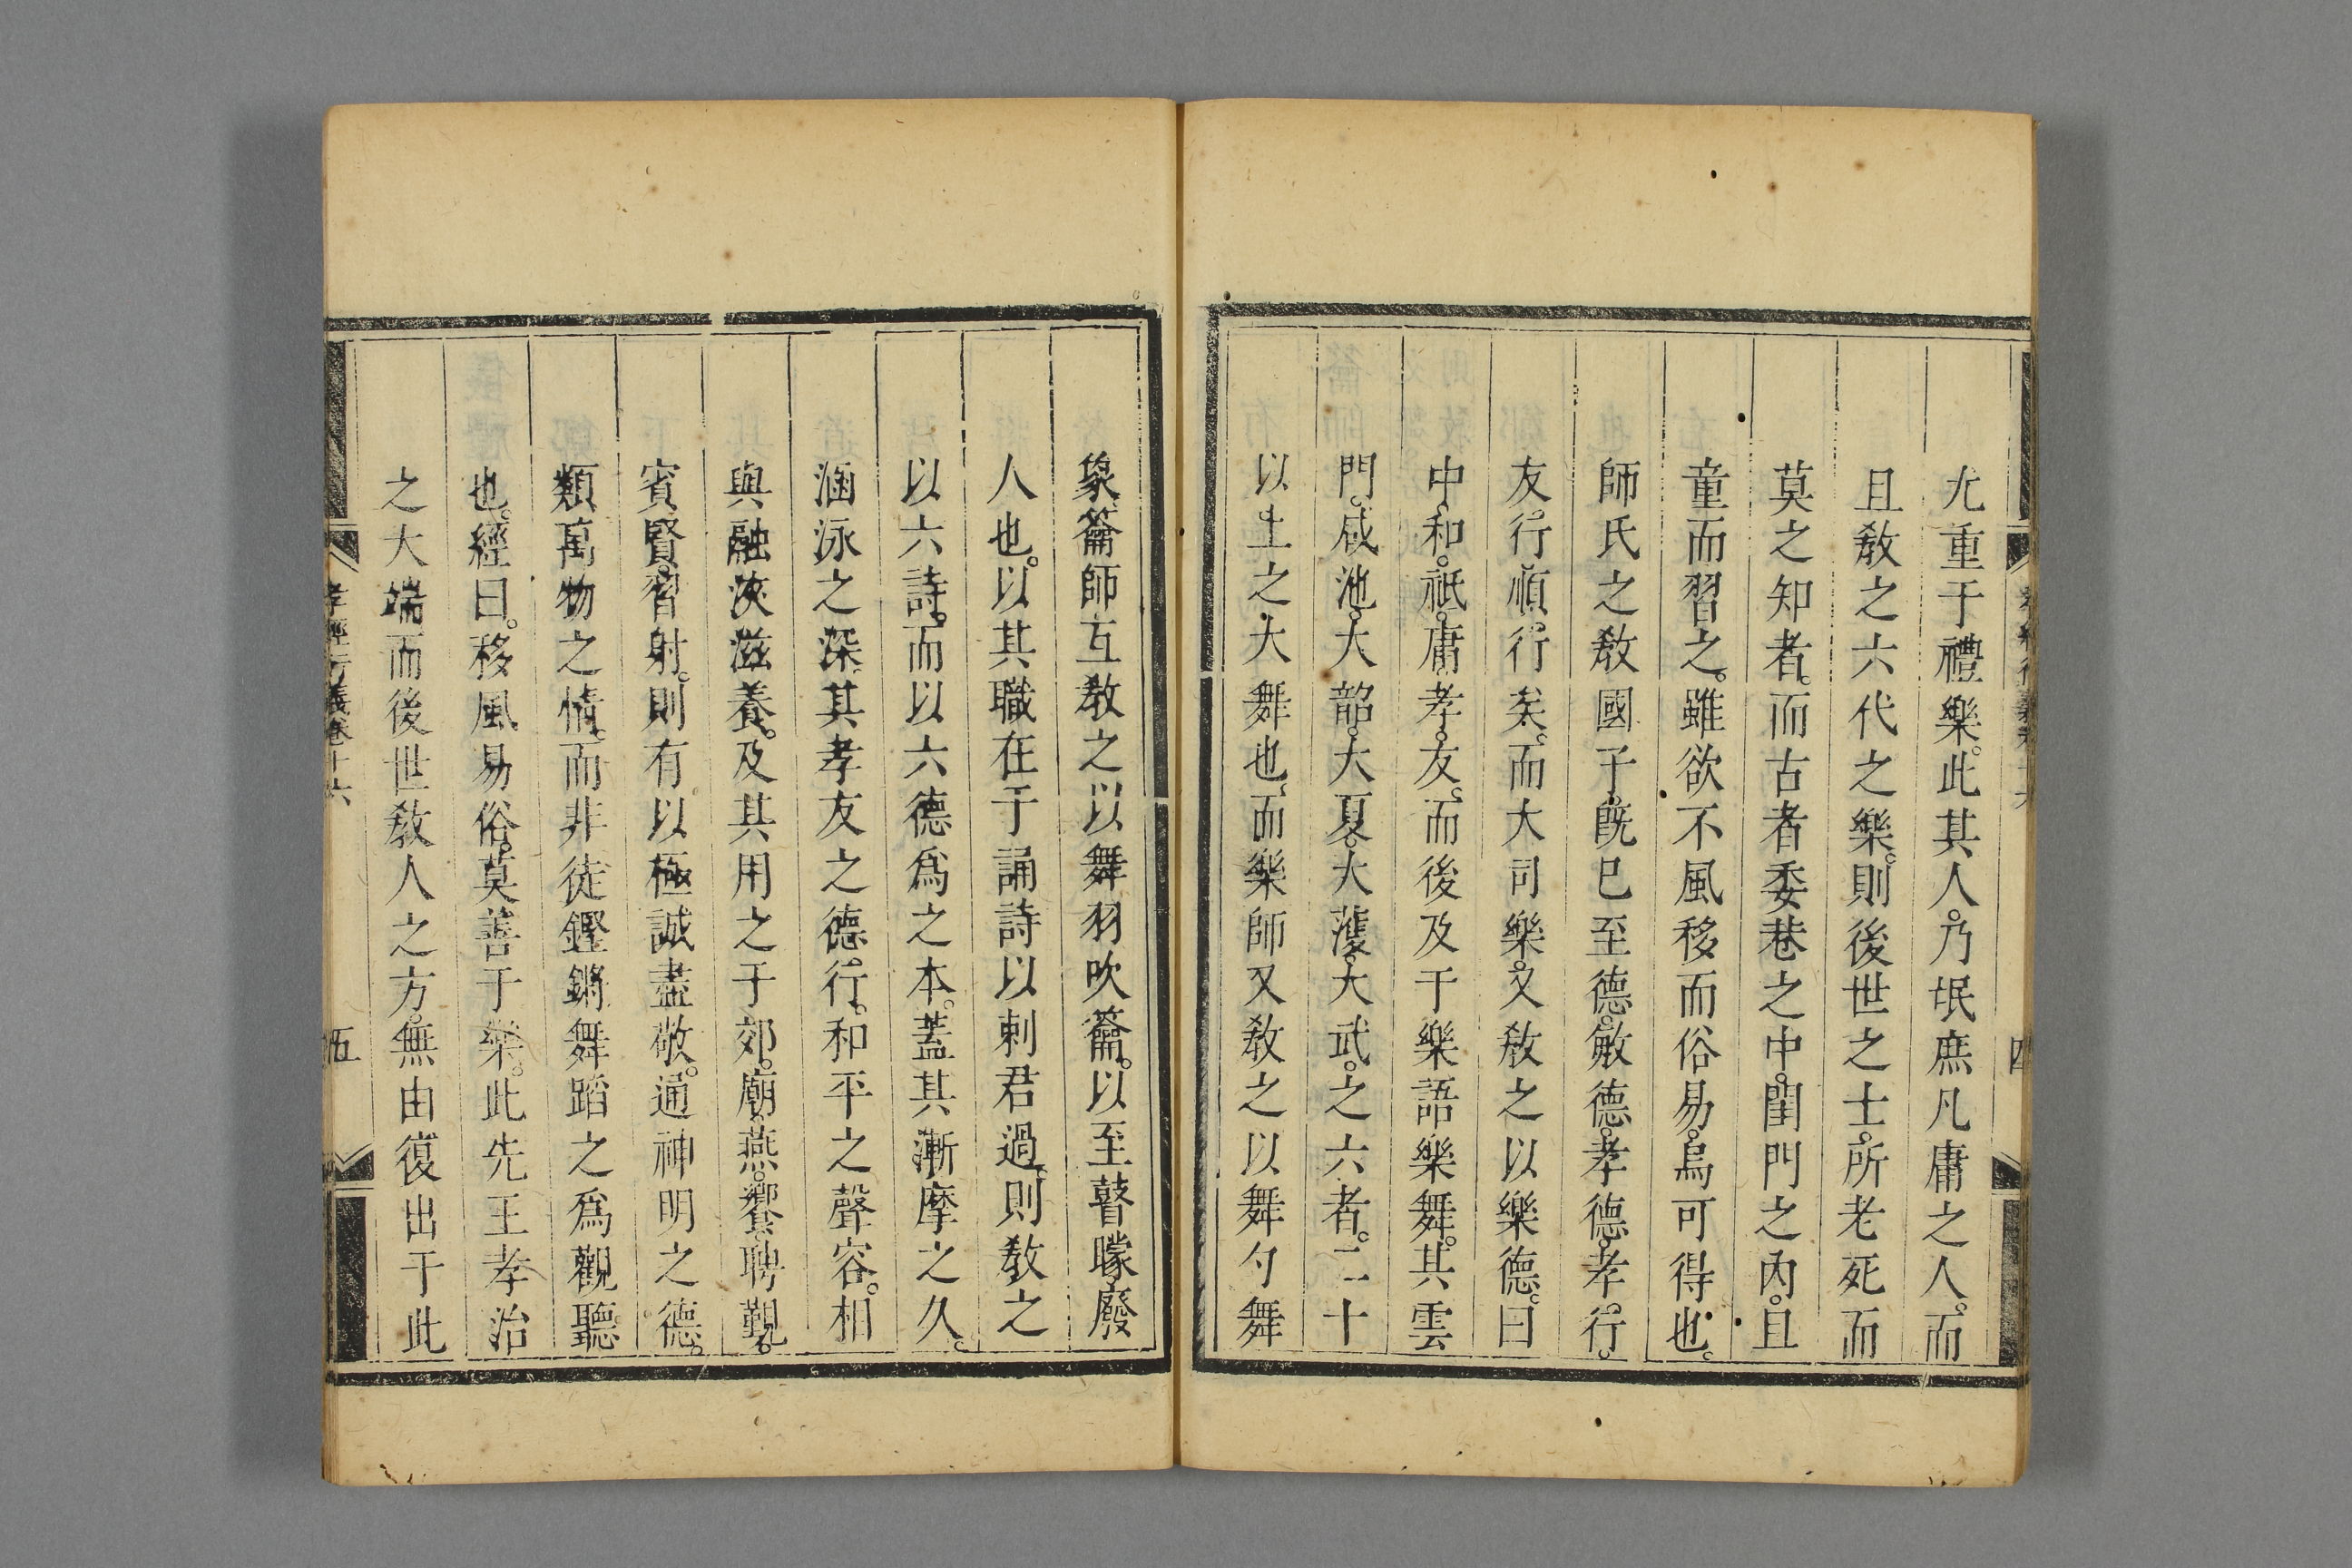 尤重于禮樂。此其人。乃氓庶凡庸之人。而
且敎之六代之樂。則後世之士。所老死而
莫之知者。而古者委巷之中。閨門之內。且
童而習之。雖欲不風移而俗易。烏可得也。
師氏之敎國子。旣已至德。敏德。孝德。孝行。
友行。順行矣。而大司樂。又敎之以樂德。曰
中。和。祗。庸。孝。友。而後及于樂語樂舞。其雲
門。咸池。大韶。大夏。大濩。大武。之六者。二十
以上之大舞也。而樂師又敎之以舞勺舞
象。籥師互敎之以舞羽吹籥。以至瞽矇。廢
人也。以其職在于誦詩以刺君過。則敎之
以六詩。而以六德爲之本。蓋其漸摩之久。
涵泳之深。其孝友之德行。和平之聲容。相
與融浹滋養。及其用之于郊。廟。燕。饗。聘。覲。
賓賢。習射。則有以極誠盡敬。通神明之德。
類萬物之情。而非徒鏗鏘舞蹈之爲觀聽
也。經曰。移風易俗。莫善于樂。此先王孝治
之大端而後世敎人之方。無由復出于此
孝經衍義卷十六
五